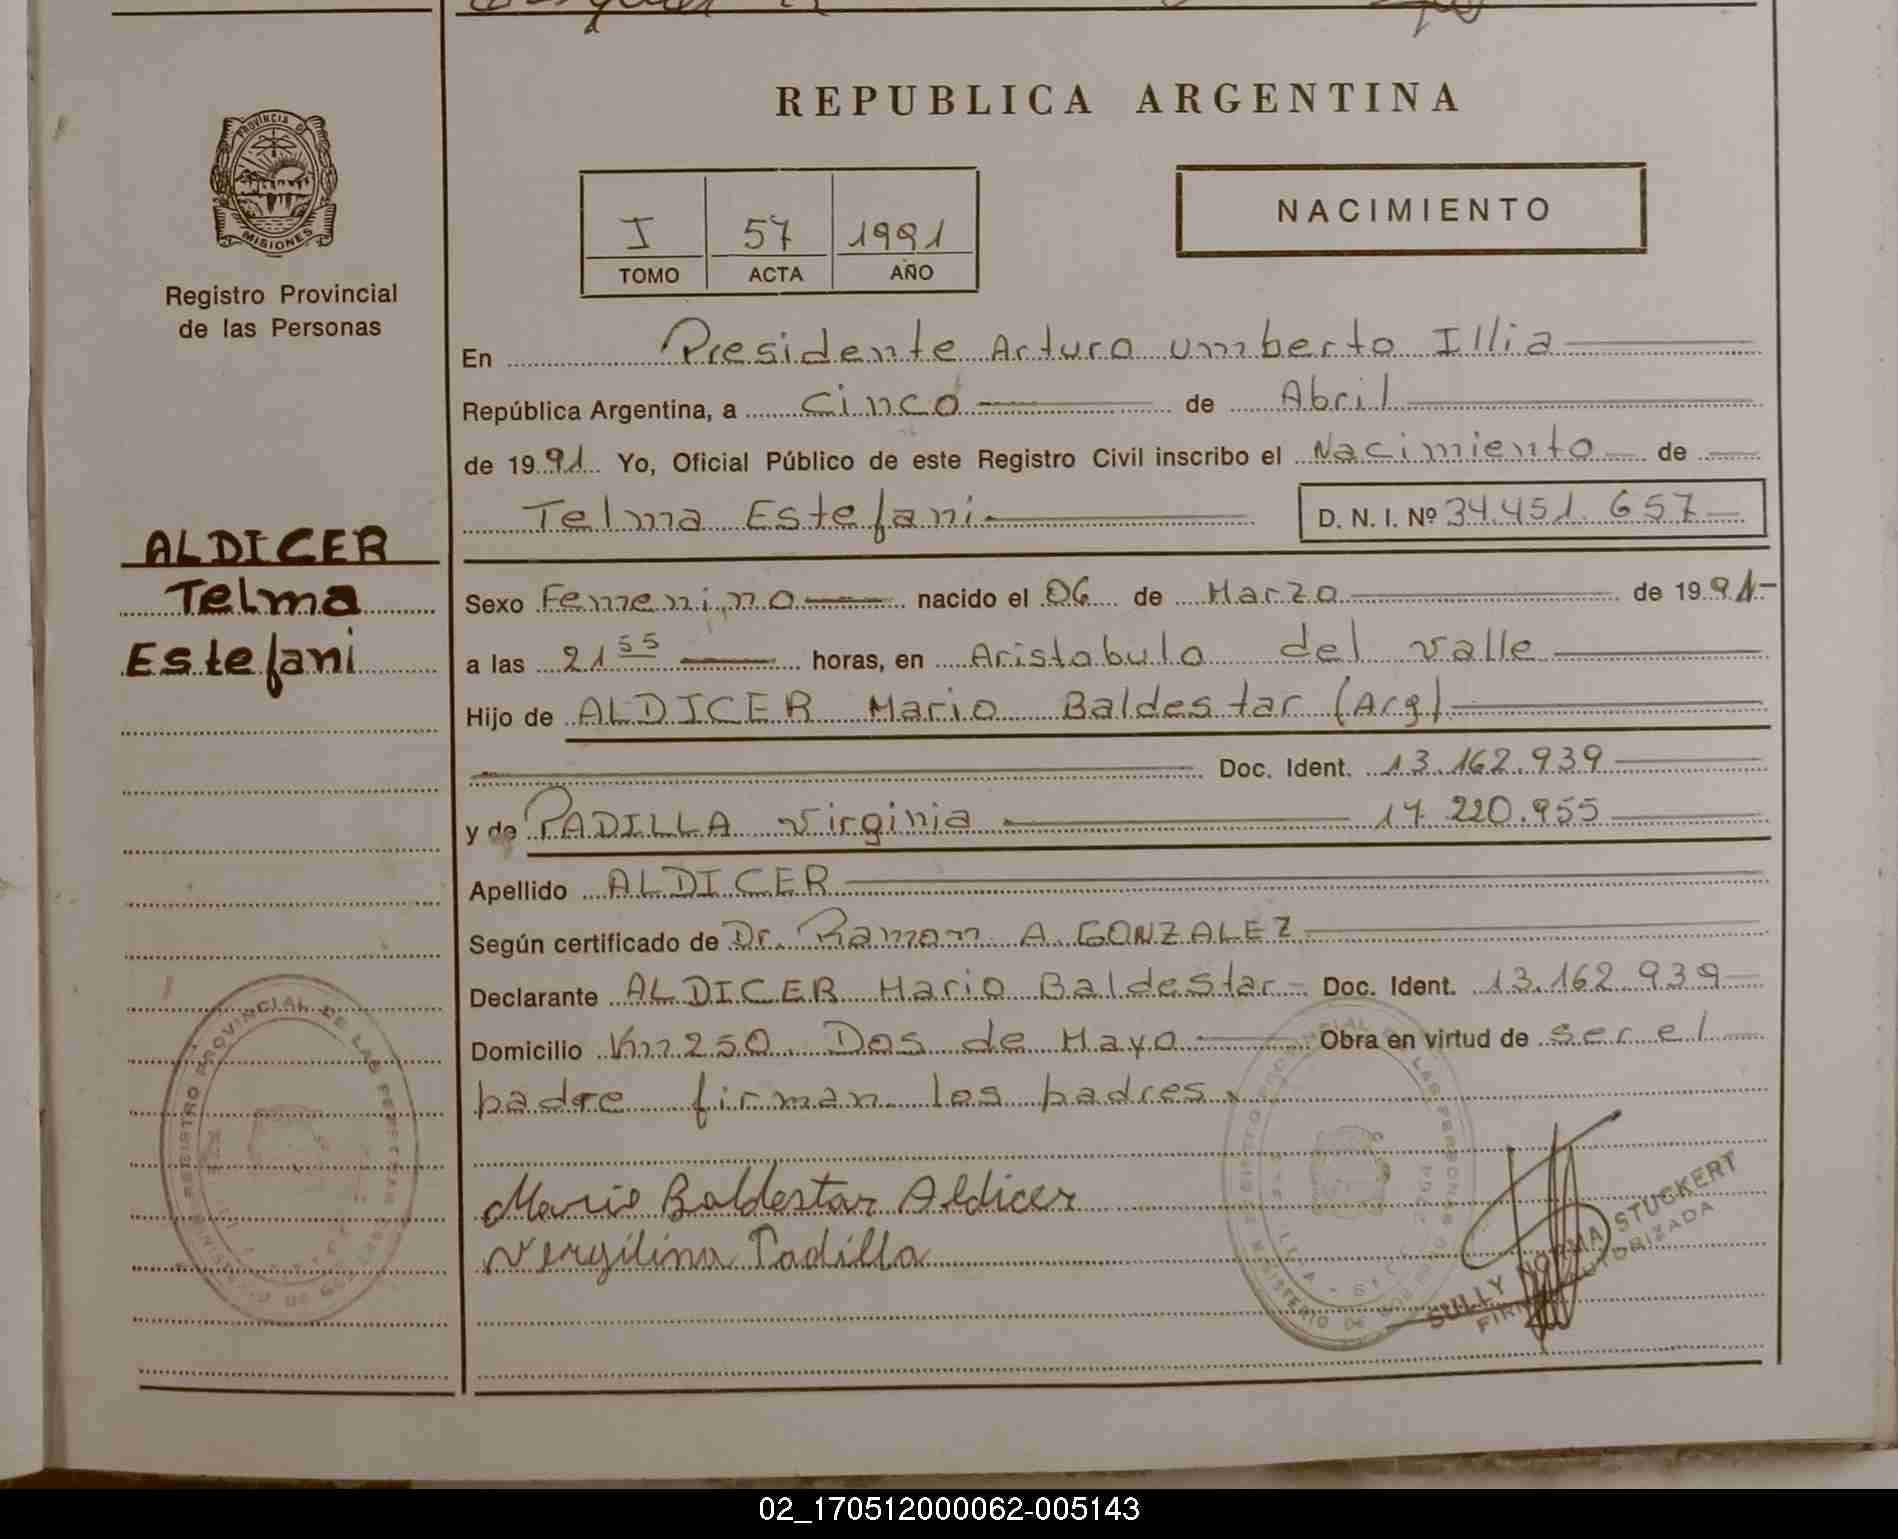 REPUBLICA ARGENTINA
PROVINCIA DE
MISIONES
Registro Provincial
de las Personas
I 57 1991
TOMO ACTA AÑO
NACIMIENTO
En Presidente Arturo Umberto Illia
República Argentina, a cinco de Abril
de 1991 Yo, Oficial Público de este Registro Civil inscribo el Nacimiento de
Telma Estefani D. N. I. Nº 34.451.657
ALDICER
Telma
Estefani
Sexo Femenino nacido el 06 de Marzo de 1991
a las 21 55 horas, en Aristobulo del valle
Hijo de ALDICER Mario Baldestar (Arg)
Doc. Ident. 13.162.939
y de PADILLA Virginia 17.220.955
Apellido ALDICER
Según certificado de Dr. Ramon A GONZALEZ
Declarante ALDICER Mario Baldestar Doc. Ident. 13.162.939
Domicilio Km 250 Dos de Mayo Obra en virtud de ser el
padre firman los padres
Mario Baldestar Aldicer
Vergilina Padilla
REGISTRO PROVINCIAL DE LAS PERSONAS
SULLY NORMA STUCKERT
FIRMA AUTORIZADA
02_170512000062-005143